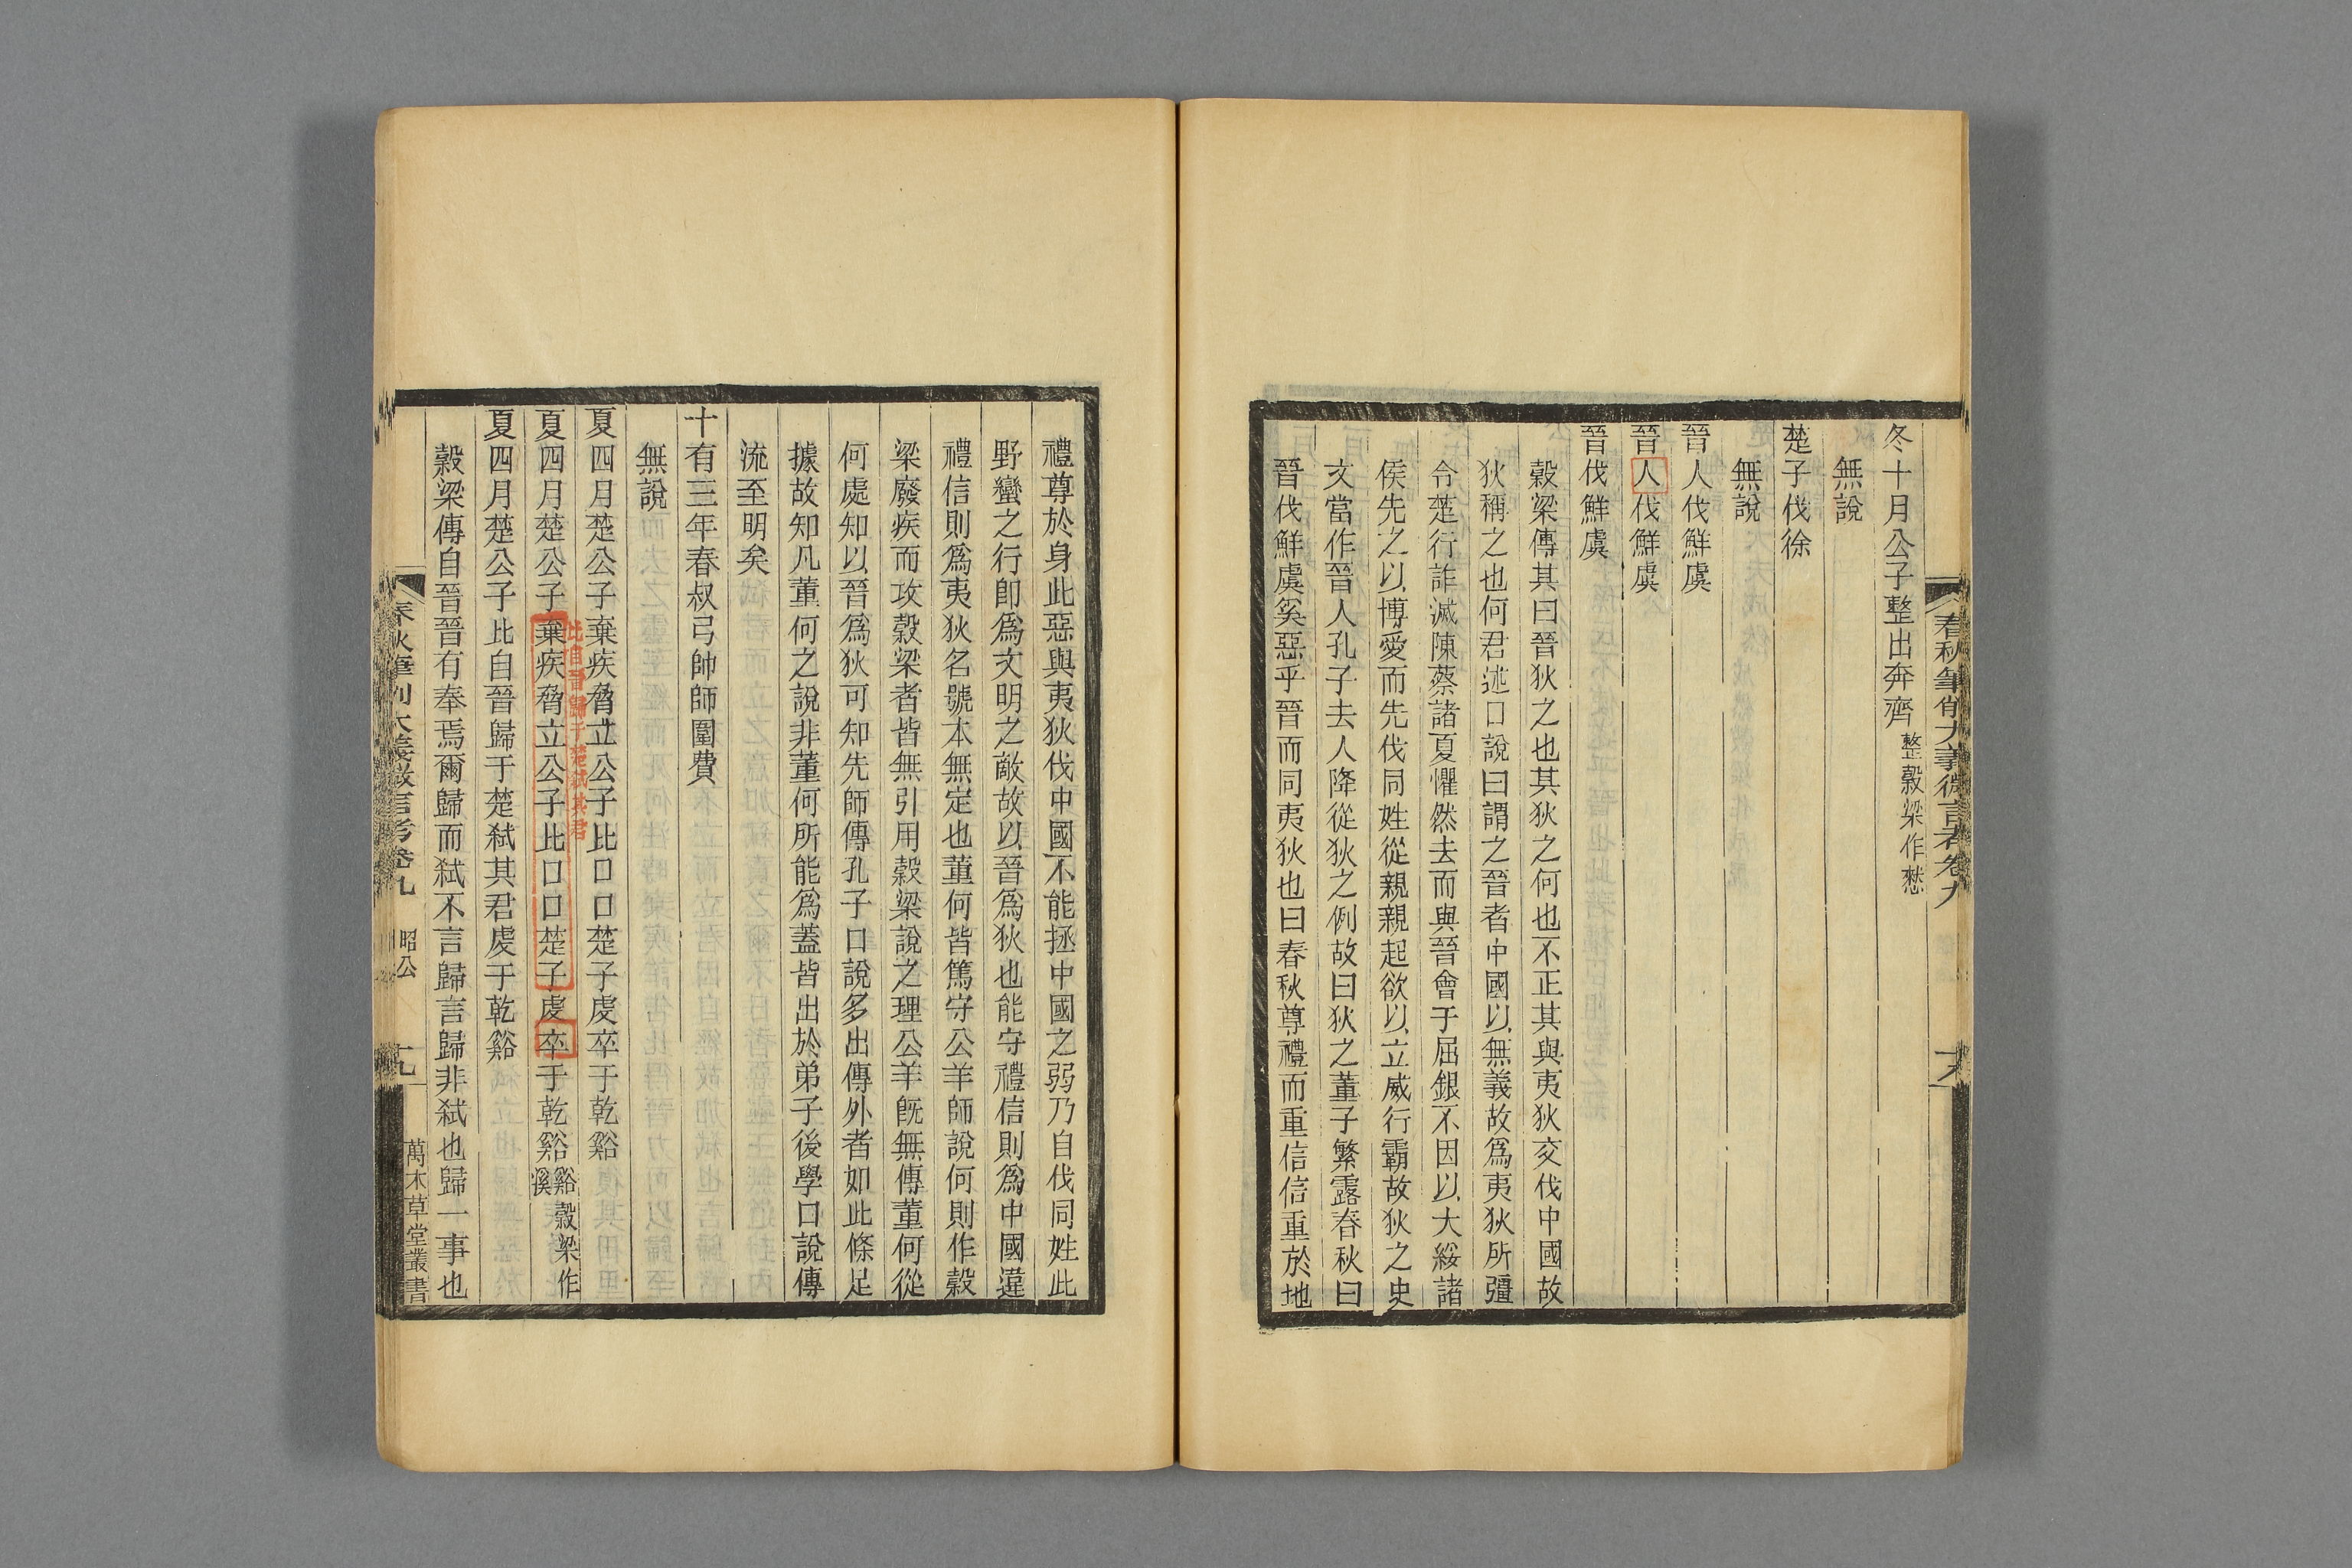 春秋筆削大義微言考卷九
十八
冬十月公子整出奔齊整穀梁作憖
無說
楚子伐徐
無說
晉人伐鮮虞
晉人伐鮮虞
晉伐鮮虞
穀梁傳其曰晉狄之也其狄之何也不正其與夷狄交伐中國故
狄稱之也何君述口說曰謂之晉者中國以無義故爲夷狄所彊
令楚行詐滅陳蔡諸夏懼然去而與晉會于屈銀不因以大綏諸
侯先之以博愛而先伐同姓從親親起欲以立威行霸故狄之史
文當作晉人孔子去人降從狄之例故曰狄之董子繁露春秋曰
晉伐鮮虞奚惡乎晉而同夷狄也曰春秋尊禮而重信信重於地
禮尊於身此惡與夷狄伐中國不能拯中國之弱乃自伐同姓此
野蠻之行卽爲文明之敵故以晉爲狄也能守禮信則爲中國違
禮信則爲夷狄名號本無定也董何皆篤守公羊師說何則作穀
梁廢疾而攻穀梁者皆無引用穀梁說之理公羊旣無傳董何從
何處知以晉爲狄可知先師傳孔子口說多出傳外者如此條足
據故知凡董何之說非董何所能爲蓋皆出於弟子後學口說傳
流至明矣
十有三年春叔弓帥師圍費
無說
夏四月楚公子棄疾脅立公子比口口楚子虔卒于乾谿
比自晉歸于楚弒其君
夏四月楚公子棄疾脅立公子比口口楚子虔卒于乾谿谿穀梁作溪
夏四月楚公子比自晉歸于楚弒其君虔于乾谿
穀梁傳自晉晉有奉焉爾歸而弒不言歸言歸非弒也歸一事也
春秋筆削大義微言考卷九
昭公
十九
萬木草堂叢書